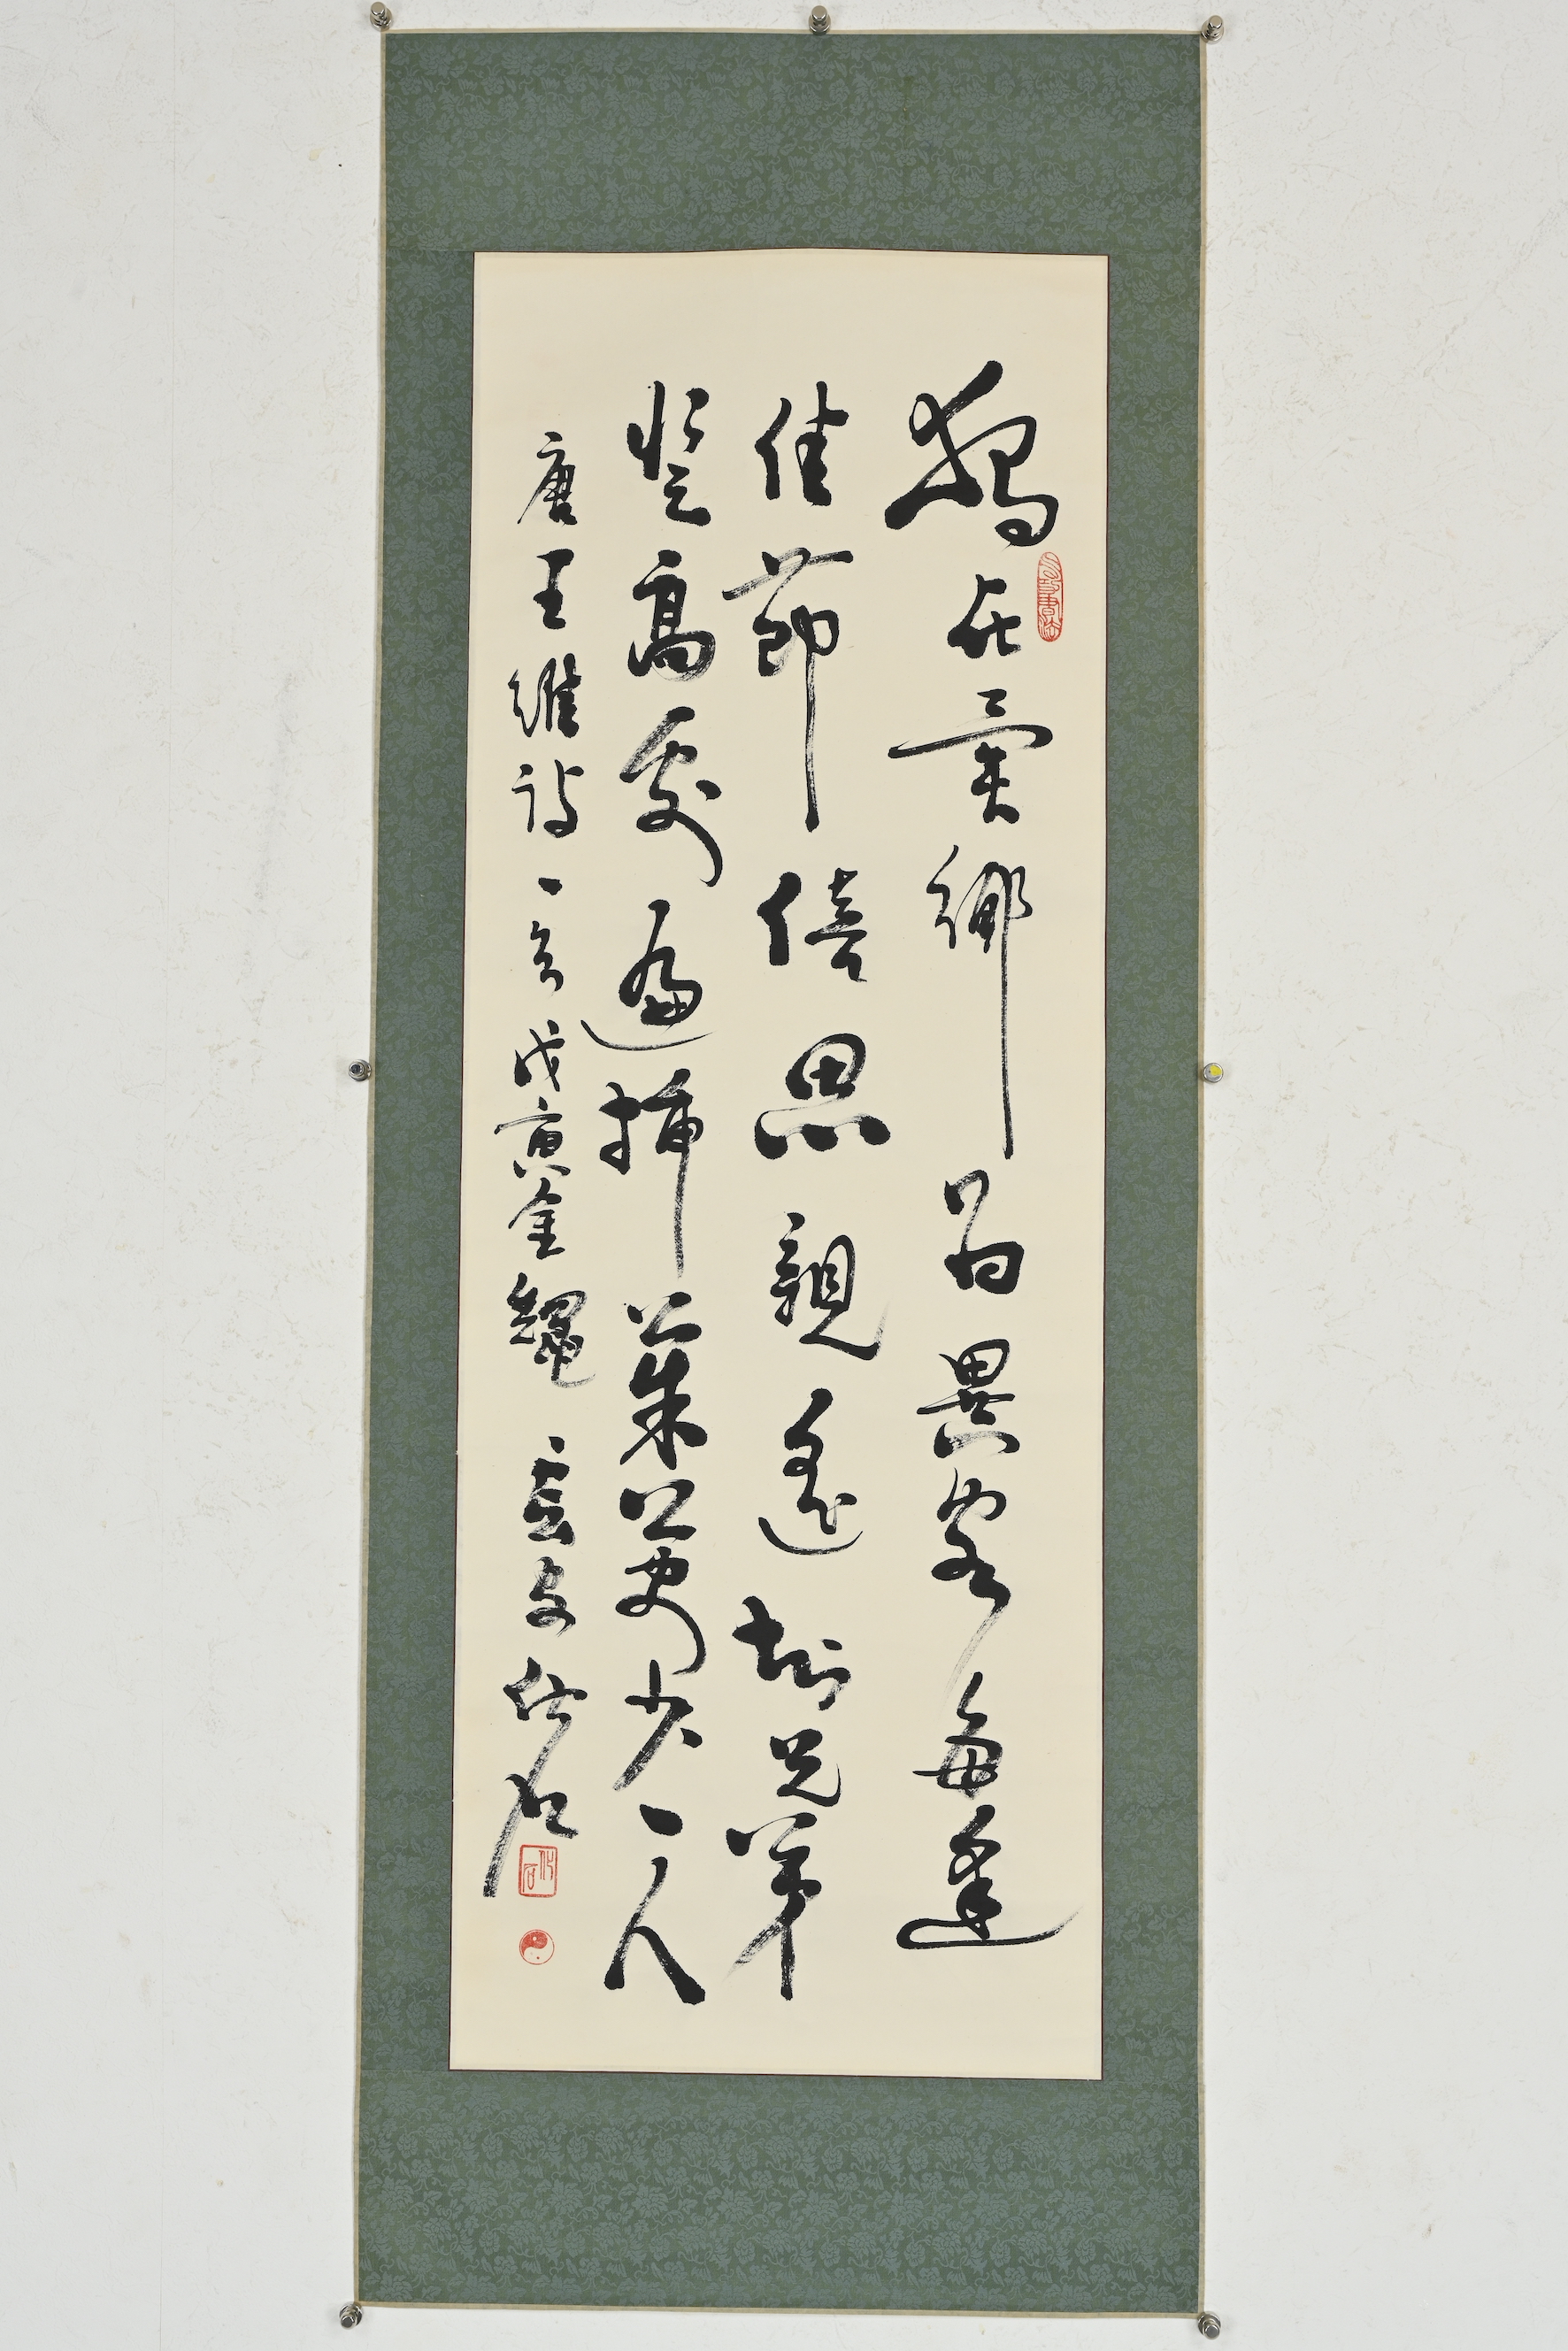 獨在異鄉為異客每逢
佳節倍思親遙知兄弟
登高處遍插茱萸少一人
唐王維詩一首戊寅金龝